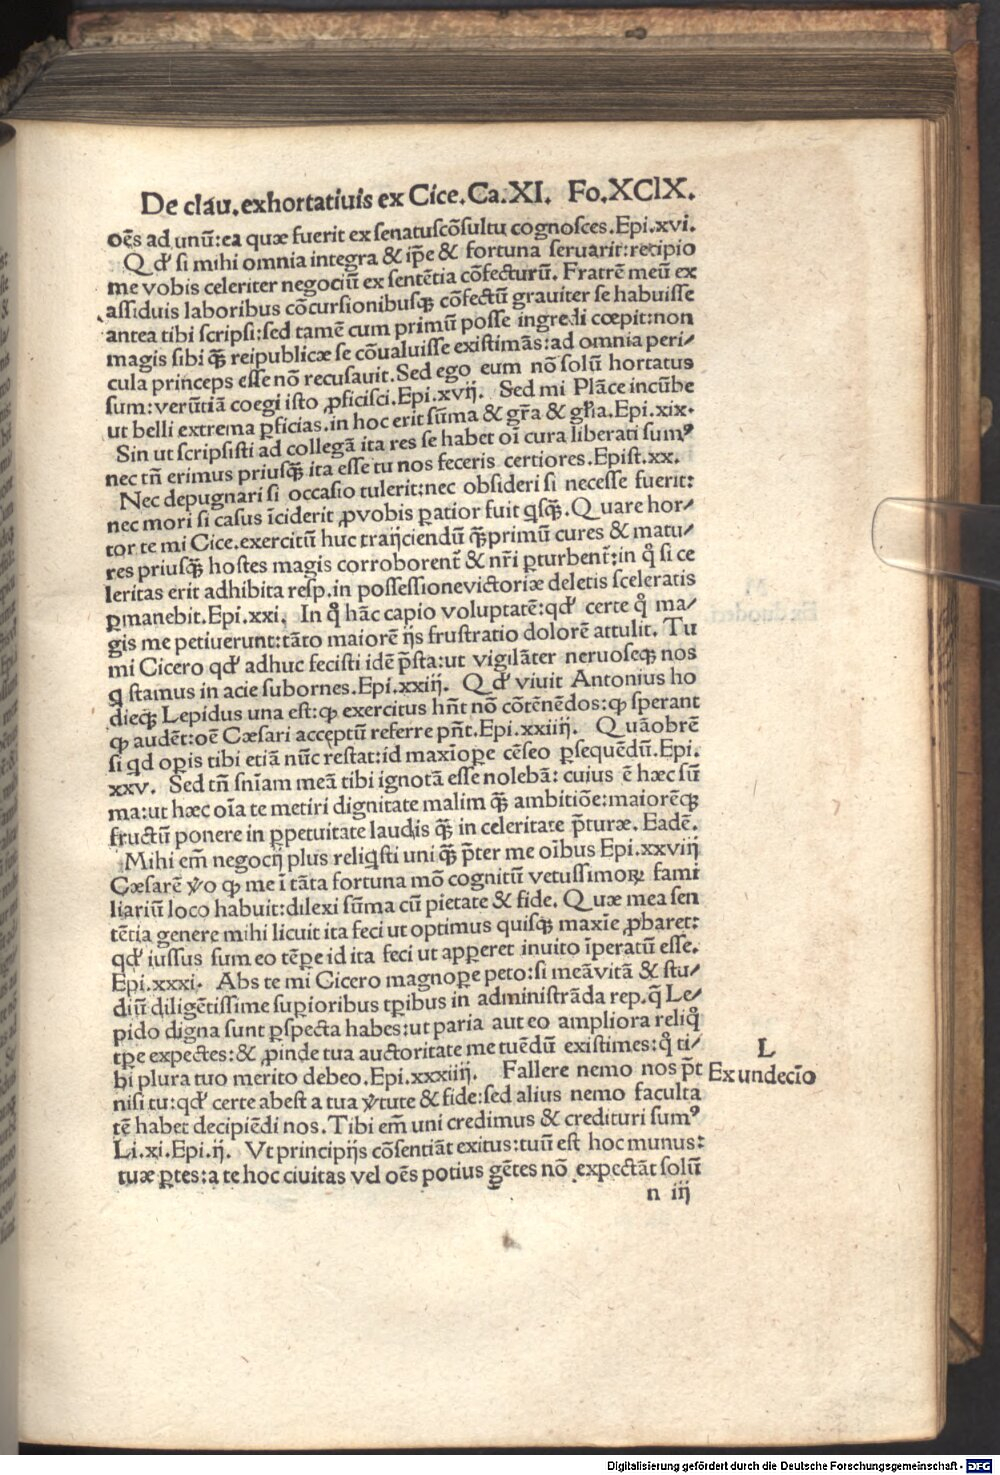 De clau. exhortatiuis ex Cice. Ca. XI. Fo. XCIX.
oẽs ad unũ: ea quæ fuerit ex senatuscõsultu cognosces. Epi. xvi.
Qď si mihi omnia integra & ip̃e & fortuna seruarit: recipio
me vobis celeriter negociũ ex sentẽtia cõfecturũ. Fratrẽ meũ ex
assiduis laboribus cõcursionibusꝗ̃ cõfectũ grauiter se habuisse
antea tibi scripsi: sed tamẽ cum primũ posse ingredi cœpit: non
magis sibi ꝗ̃ reipublicæ se cõualuisse existimãs: ad omnia peri/
cula princeps esse nõ recusauit. Sed ego eum nõ solũ hortatus
sum: verũtiã coegi isto ꝓficisci. Epi. xvij. Sed mi Plãce incũbe
ut belli extrema ꝑficias. in hoc erit sũma & gr̃a & gl̃ia. Epi. xix.
Sin ut scripsisti ad collegã ita res se habet oĩ cura liberati sumꝰ
nec tñ erimus priusꝗ̃ ita esse tu nos feceris certiores. Epist. xx.
Nec depugnari si occasio tulerit: nec obsideri si necesse fuerit:
nec mori si casus ĩciderit ꝓ vobis ꝑatior fuit q̃sꝗ̃. Quare hor/
tor te mi Cice. exercitũ huc traijciendũ ꝗ̃primũ cures & matu/
res priusꝗ̃ hostes magis corroborent̃ & nr̃i ꝑturbent̃: in qͦ si ce
leritas erit adhibita resp. in possessione victoriæ deletis sceleratis
ꝑmanebit. Epi. xxi. In qͣ hãc capio voluptatẽ: qď certe qͦ ma/
gis me petiuerunt: tãto maiorẽ ijs frustratio dolorẽ attulit. Tu
mi Cicero qď adhuc fecisti idẽ p̃sta: ut vigilãter neruoseꝗ̃ nos
ꝗ stamus in acie subornes. Epi. xxiij. Qď viuit Antonius ho
dieꝗ̃ Lepidus una est: ꝙ exercitus hñt nõ cõtẽnẽdos: ꝙ sperant
ꝙ audẽt: oẽ Cæsari acceptũ referre pñt. Epi. xxiiij. Quãobrẽ
si ꝗd opis tibi etiã nũc restat: id maxĩoꝑe cẽseo ꝑsequẽdũ. Epi.
xxv. Sed tñ sñiam meã tibi ignotã esse nolebã: cuius ẽ hæc sũ
ma: ut hæc oĩa te metiri dignitate malim ꝗ̃ ambitiõe: maiorẽꝗ̃
fructũ ponere in ꝑpetuitate laudis ꝗ̃ in celeritate p̃turæ. Eadẽ.
Mihi em̃ negocij plus reliꝗsti uni ꝗ̃ p̃ter me oĩbus Epi. xxviij
Cæsarẽ ṽo ꝙ me ĩ tãta fortuna mõ cognitũ vetustissimoꝝ fami
liariũ loco habuit: dilexi sũma cũ pietate & fide. Quæ mea sen
tẽtia genere mihi licuit ita feci ut optimus quisꝗ̃ maxĩe ꝓbaret:
qď iussus sum eo tẽꝑe id ita feci ut apperet inuito ĩperatũ esse.
Epi. xxxi. Abs te mi Cicero magnoꝑe peto: si meã vitã & stu/
diũ diligẽtissime suꝑioribus tꝑibus in administrãda rep. q̃ Le/
pido digna sunt ꝑspecta habes: ut paria aut eo ampliora reliqͦ
tꝑe expectes: & ꝓinde tua auctoritate me tuẽdũ existimes: qͦ ti/
bi plura tuo merito debeo. Epi. xxxiiij. Fallere nemo nos p̃t
nisi tu: qď certe abest a tua ṽtute & fide: sed alius nemo faculta
tẽ habet decipiẽdi nos. Tibi em̃ uni credimus & credituri sumꝰ
Li. xi. Epi. ij. Vt principijs cõsentiãt exitus: tuũ est hoc munus:
tuæ ꝑtes: a te hoc ciuitas vel oẽs potius gẽtes nõ expectãt solũ
n iij
L
Ex undecĩo
Digitalisierung gefördert durch die Deutsche Forschungsgemeinschaft - DFG